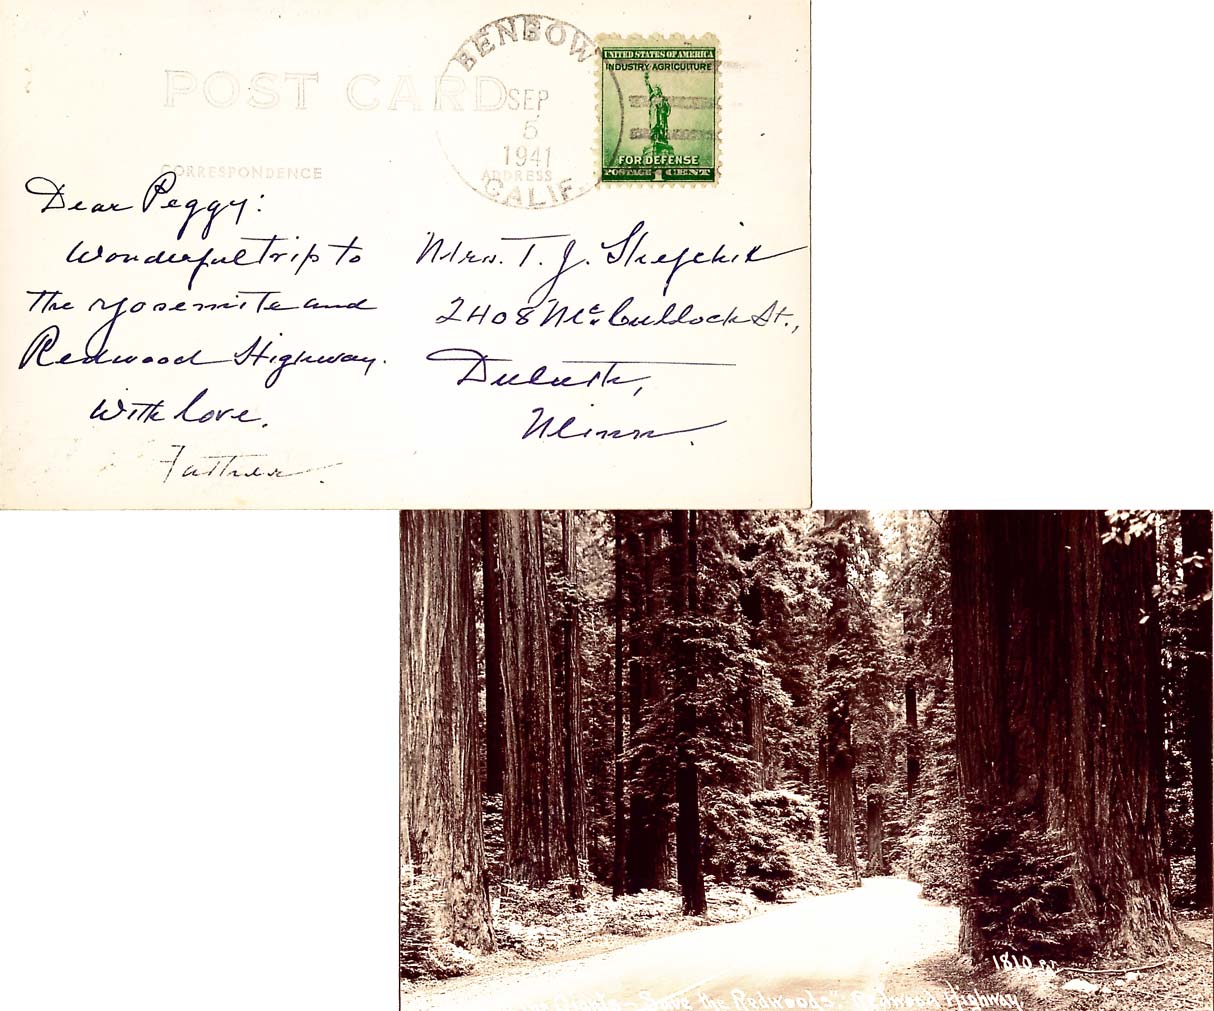 POST CARD
CORRESPONDENCE
ADDRESS
BENBOW
SEP
5
1941
CALIF.
UNITED STATES OF AMERICA
INDUSTRY·AGRICULTURE
FOR DEFENSE
POSTAGE 1 CENT
Dear Peggy:
Wonderful trip to
the Yosemite and
Redwood Highway.
With love.
Father.
Mrs. T. J.
2408 McCullock St.,
Duluth,
Minn.
1810
Save the Redwoods". Redwood Highway.